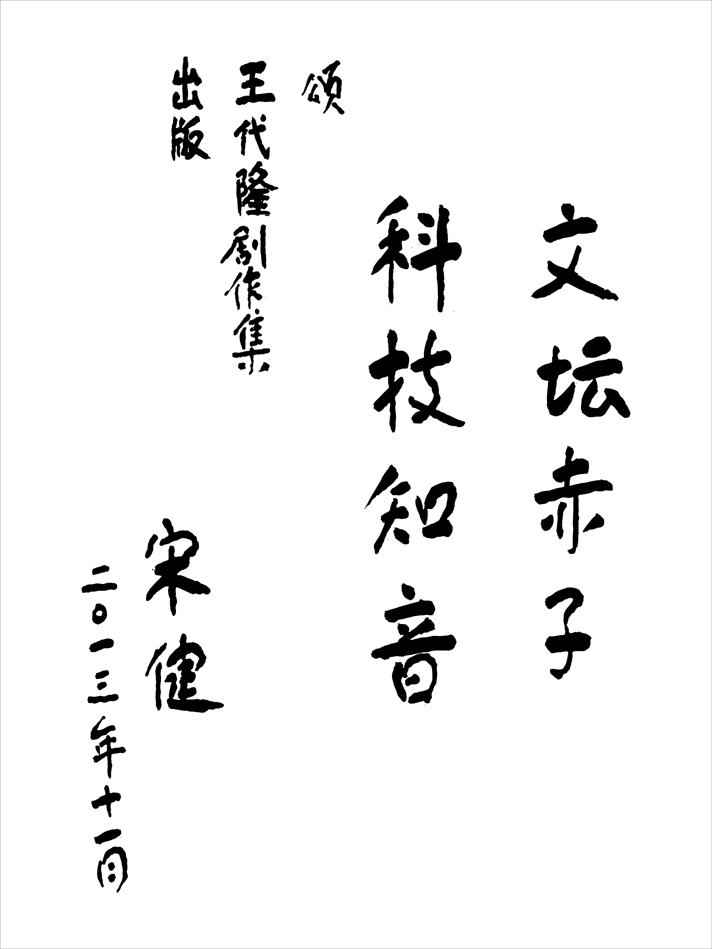 文坛赤子
科技知音
颂
王代隆剧作集
出版
宋健
二〇一三年十一月